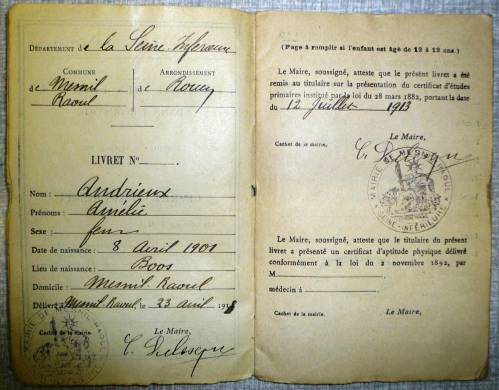 Département de la Seine Inférieure
Commune
de Mesnil
Raoul
Arrondissement
de Rouen
LIVRET No
Nom : Andrieux
Prénoms : Amélie
Sexe : fem
Date de naissance : 8 Avril 1901
Lieu de naissance : Boos
Domicile : Mesnil Raoul
Délivré Mesnil Raoul, le 23 avril
Le Maire,
Cachet de la mairie.
(Page à remplir si l'enfant est âgé de 12 à 13 ans.)
Le Maire, soussigné, atteste que le présent livret a été
remis au titulaire sur la présentation du certificat d'études
primaires institué par la loi du 28 mars 1882, portant la date
du 12 Juillet 1913
Le Maire,
Cachet de la mairie.
MAIRIE DE MESNIL-RAOUL
SEINE-INFÉRIEURE
Le Maire, soussigné, atteste que le titulaire du présent
livret a présenté un certificat d'aptitude physique délivré
conformément à la loi du 2 novembre 1892, par
M
médecin à
Le Maire,
Cachet de la mairie.